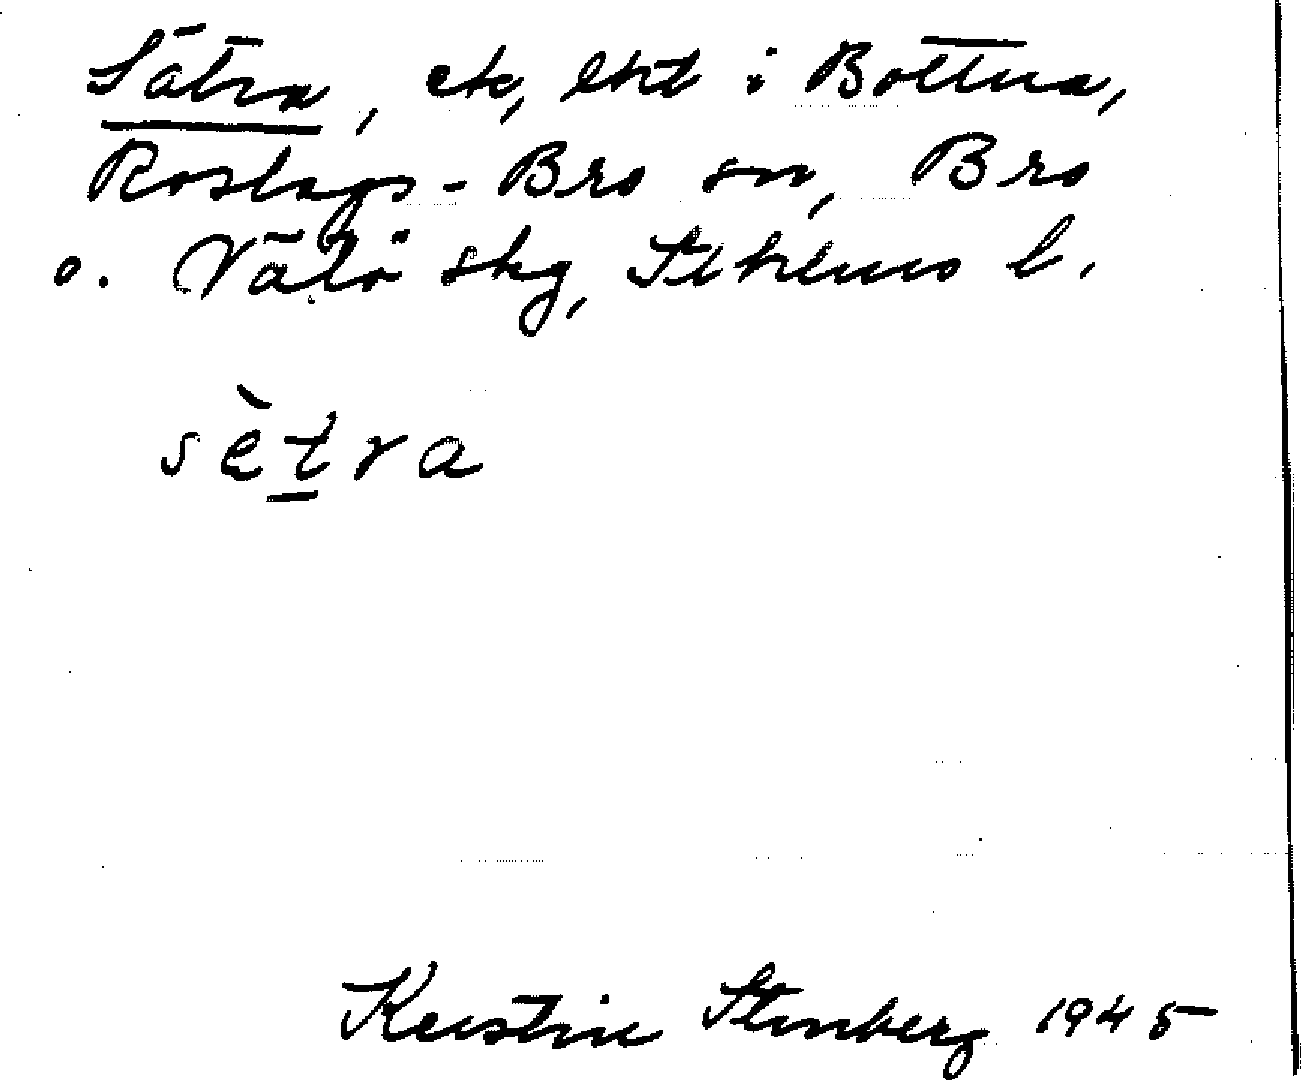 Sätra, ek, lht i Bottna,
Roslags-Bro sn, Bro
o. Vätö skg, Sthlms l.
sètra
Kerstin Stenberg 1945